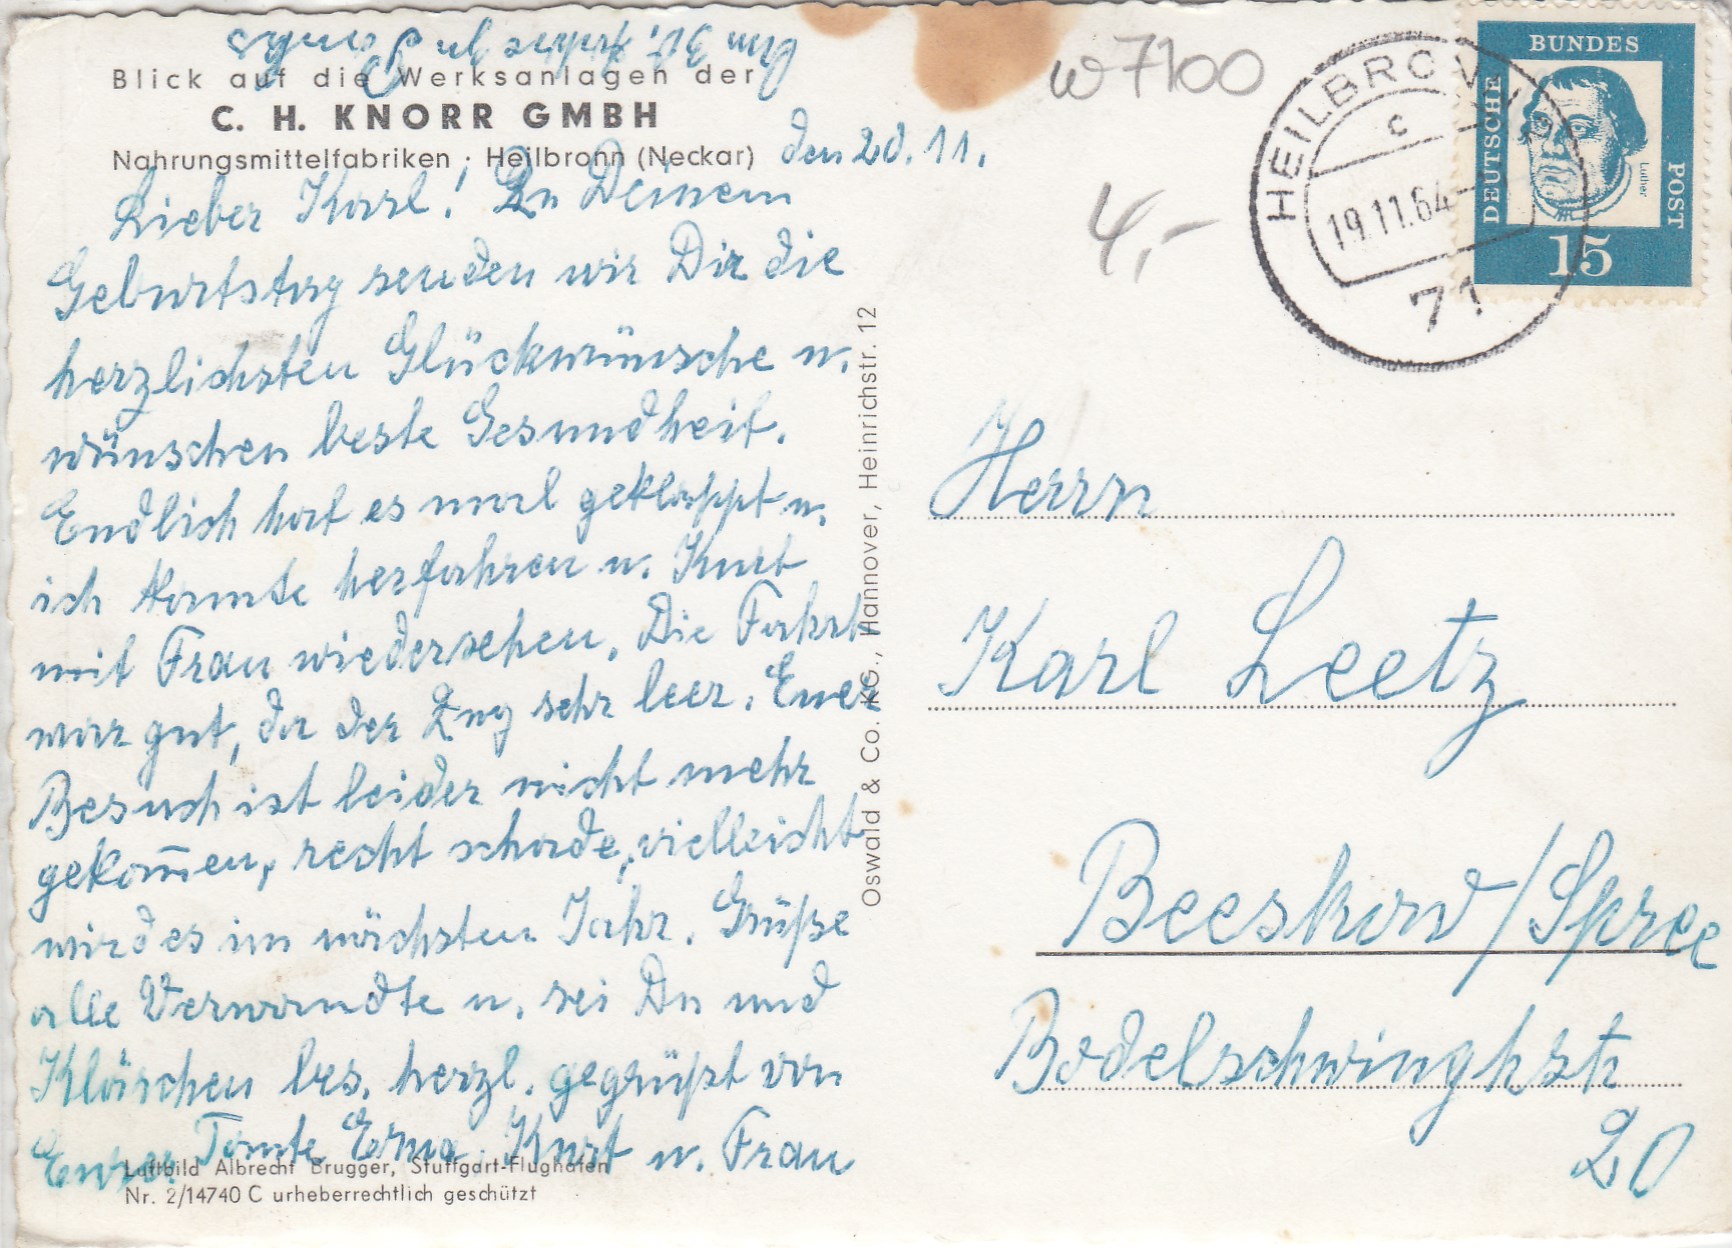 Bin 30. früh zu Hause
Blick auf die Werksanlagen der
C. H. KNORR GMBH
Nahrungsmittelfabriken · Heilbronn (Neckar)
den 20. 11.
Lieber Karl! Zu Deinem
Geburtstag senden wir Dir die
herzlichsten Glückwünsche u.
wünschen beste Gesundheit.
Endlich hat es mal geklappt u.
ich konnte herfahren u. Kurt
mit Frau wiedersehen. Die Fahrt
war gut, da der Zug sehr leer. Euer
Besuch ist leider nicht mehr
gekom̅en, recht schade, vielleicht
wird es im nächsten Jahr. Grüße
alle Verwandte u. sei Du und
Klärchen bes. herzl. gegrüßt von
Eurer Tante Erna. Kurt u. Frau
Luftbild Albrecht Brugger, Stuttgart-Flughafen
Nr. 2/14740 C urheberrechtlich geschützt
Oswald & Co. KG., Hannover, Heinrichstr. 12
w 7100
4,-
HEILBRONN
c
19.11.64
71
BUNDES
DEUTSCHE
POST
Luther
15
Herrn
Karl Leetz
Beeskow/Spree
Bodelschwinghstr
20